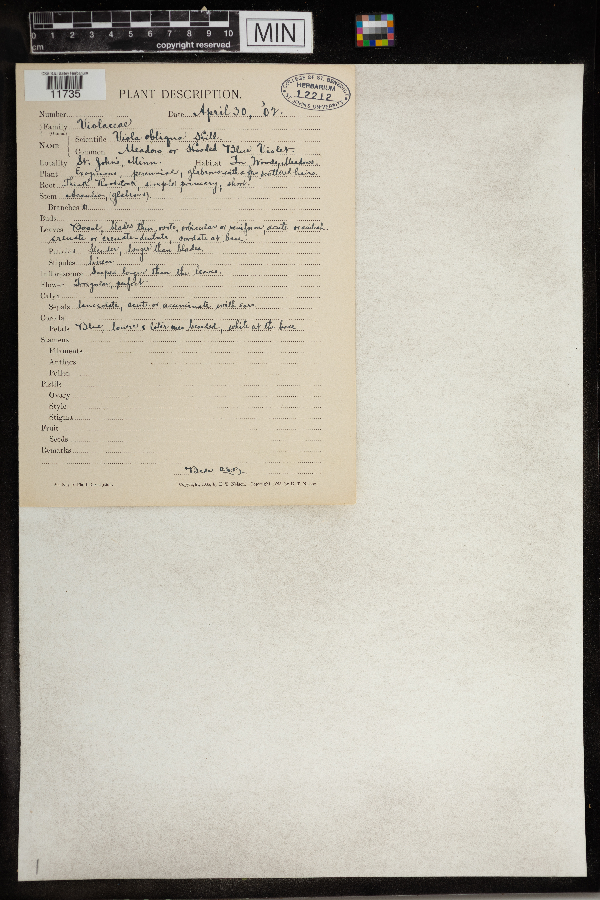 0 1 2 3 4 5 6 7 8 9 10
cm
copyright reserved
MIN
11735
COLLEGE OF ST. BENEDICT
HERBARIUM
12212
ST. JOHN'S UNIVERSITY
PLANT DESCRIPTION.
Number
Date April 30, '02.
Family Violaceae
NAME
Scientific Viola obliqua Hill.
Common Meadow or Hooded Blue Violet
Locality St. John's, Minn. Habitat In Woods, Meadows
Plant perennial, glabrous
Root Thick Rootstock, simple primary, short
Stem glabrous
Branches
Buds
Leaves Basal, blades thin, ovate, orbicular or reniform acute or
crenate or crenate-dentate, cordate at base
Slender, longer than blades
Stipules
Inflorescence Scapes longer than the leaves.
Flower Irregular, perfect
Calyx
Sepals lanceolate, acute or acuminate with ears
Corolla
Petals Blue, lower & lateral ones bearded, white at the base
Stamens
Filaments
Anthers
Pollen
Pistils
Ovary
Style
Stigma
Fruit
Seeds
Remarks